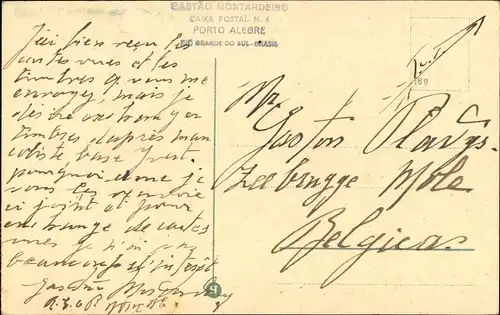 GASTÃO MOSTARDEIRO
CAIXA POSTAL N. 4
PORTO ALEGRE
RIO GRANDE DO SUL-BRASIL
J'ai bien reçu les
cartes vues et les
timbres q vous me
envoyez, mais je
désire exchanger
timbres d'après mon
base Yvert.
pourquoi je
vous les renvoie
ci joint et pour
exchange de cartes
vues je n'ai pas
beaucoup d'intérêt
Gastão Mostardeiro
Mr.
Gaston
Zeebrugge Mole
Belgica